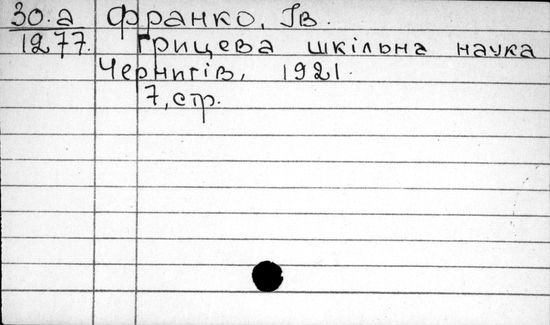 30.а Франко, Ів.
1277. Грицева шкільна наука
Чернигів, 1921.
7, стр.